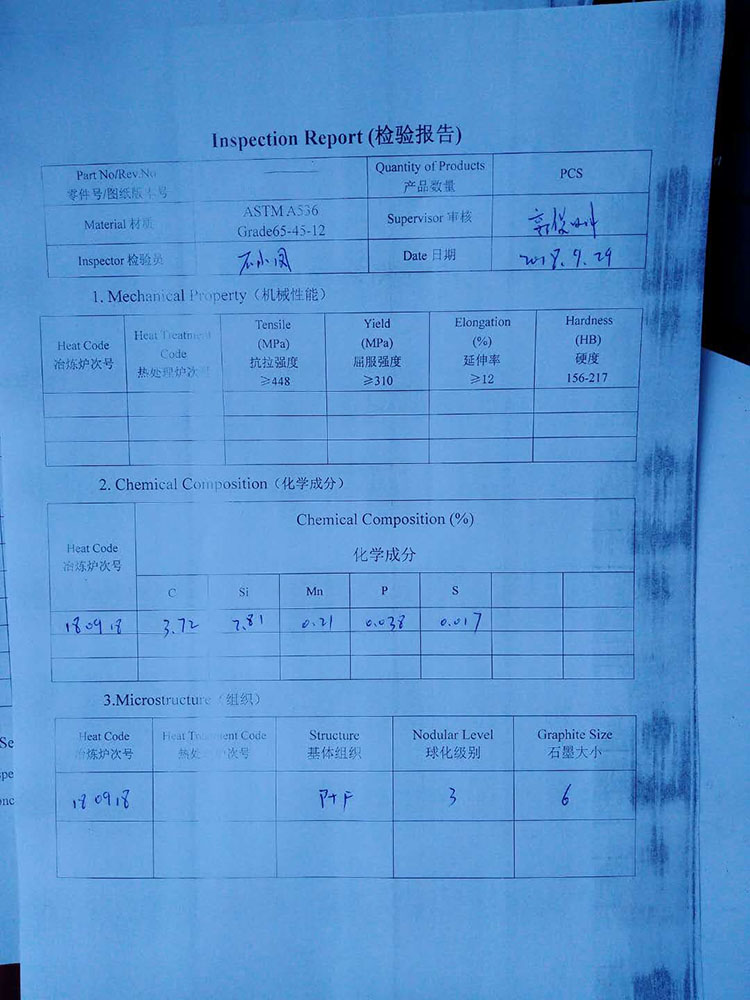 Inspection Report (检验报告)
Part No/Rev.No
零件号/图纸版本号
Quantity of Products
产品数量
PCS
Material 材质
ASTM A536
Grade65-45-12
Supervisor 审核
Inspector 检验员
石小凤
Date 日期
2018.9.29
1. Mechanical Property（机械性能）
Heat Code
冶炼炉次号
Heat Treatment
Code
热处理炉次号
Tensile
(MPa)
抗拉强度
≥448
Yield
(MPa)
屈服强度
≥310
Elongation
(%)
延伸率
≥12
Hardness
(HB)
硬度
156-217
2. Chemical Composition（化学成分）
Heat Code
冶炼炉次号
Chemical Composition (%)
化学成分
C Si Mn P S
180918 3.72 2.81 0.21 0.038 0.017
3.Microstructure（组织）
Heat Code
冶炼炉次号
Heat Treatment Code
热处理炉次号
Structure
基体组织
Nodular Level
球化级别
Graphite Size
石墨大小
180918 P+F 3 6
Se
spe
onc